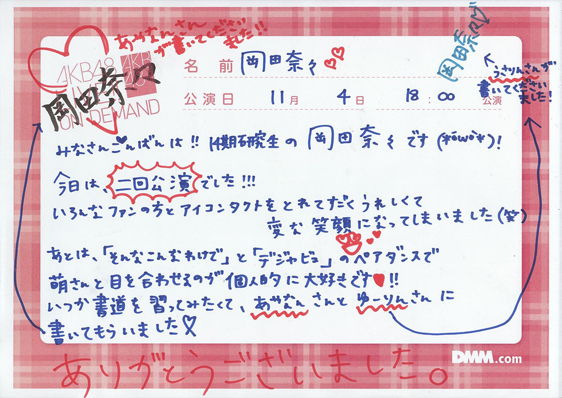 あやなんさん
が書いてください
ました!!
AKB48
LIVE!!
ON DEMAND
岡田奈々
名前 岡田奈々
岡田奈々
うさりんさんが
書いてください
ました!
公演日 11月 4日 18:00 公演
みなさんこんばんは!! 14期研究生の 岡田奈々です(*˙ω˙*)!
今日は、二回公演でした!!!
いろんなファンの方とアイコンタクトをとれてすごくうれしくて
変な笑顔になってしまいました(笑)
あとは、「そんなこんなわけで」と「デジャビュ」のペアダンスで
萌さんと目を合わせるのが個人的に大好きです!!
いつか書道を習ってみたくて、あやなんさんとゆーりんさんに
書いてもらいました♡
ありがとうございました。
DMM.com